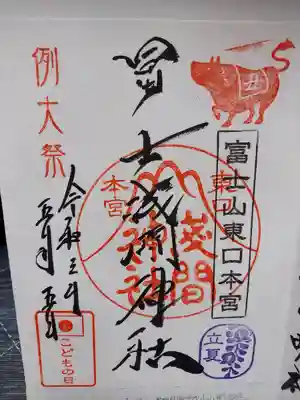 丑
富士山東口本宮
冨士浅間神社
例大祭
令和三年
五月五日
東口
本宮
浅間
神社
立夏
こどもの日